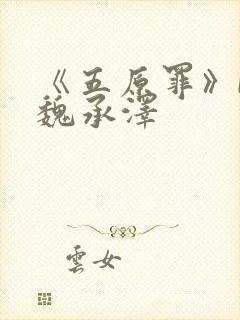 《五原罪》
魏承澤
雲女